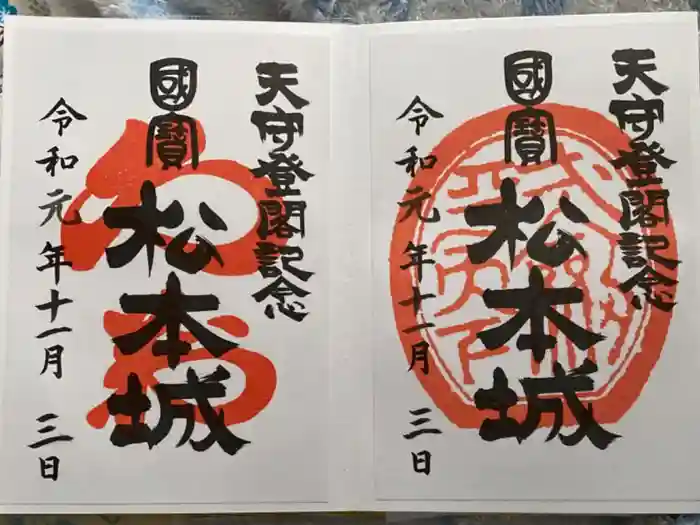 天守登閣記念
國寳
松本城
令和元年十一月三日
天守登閣記念
國寳
松本城
令和元年十一月三日